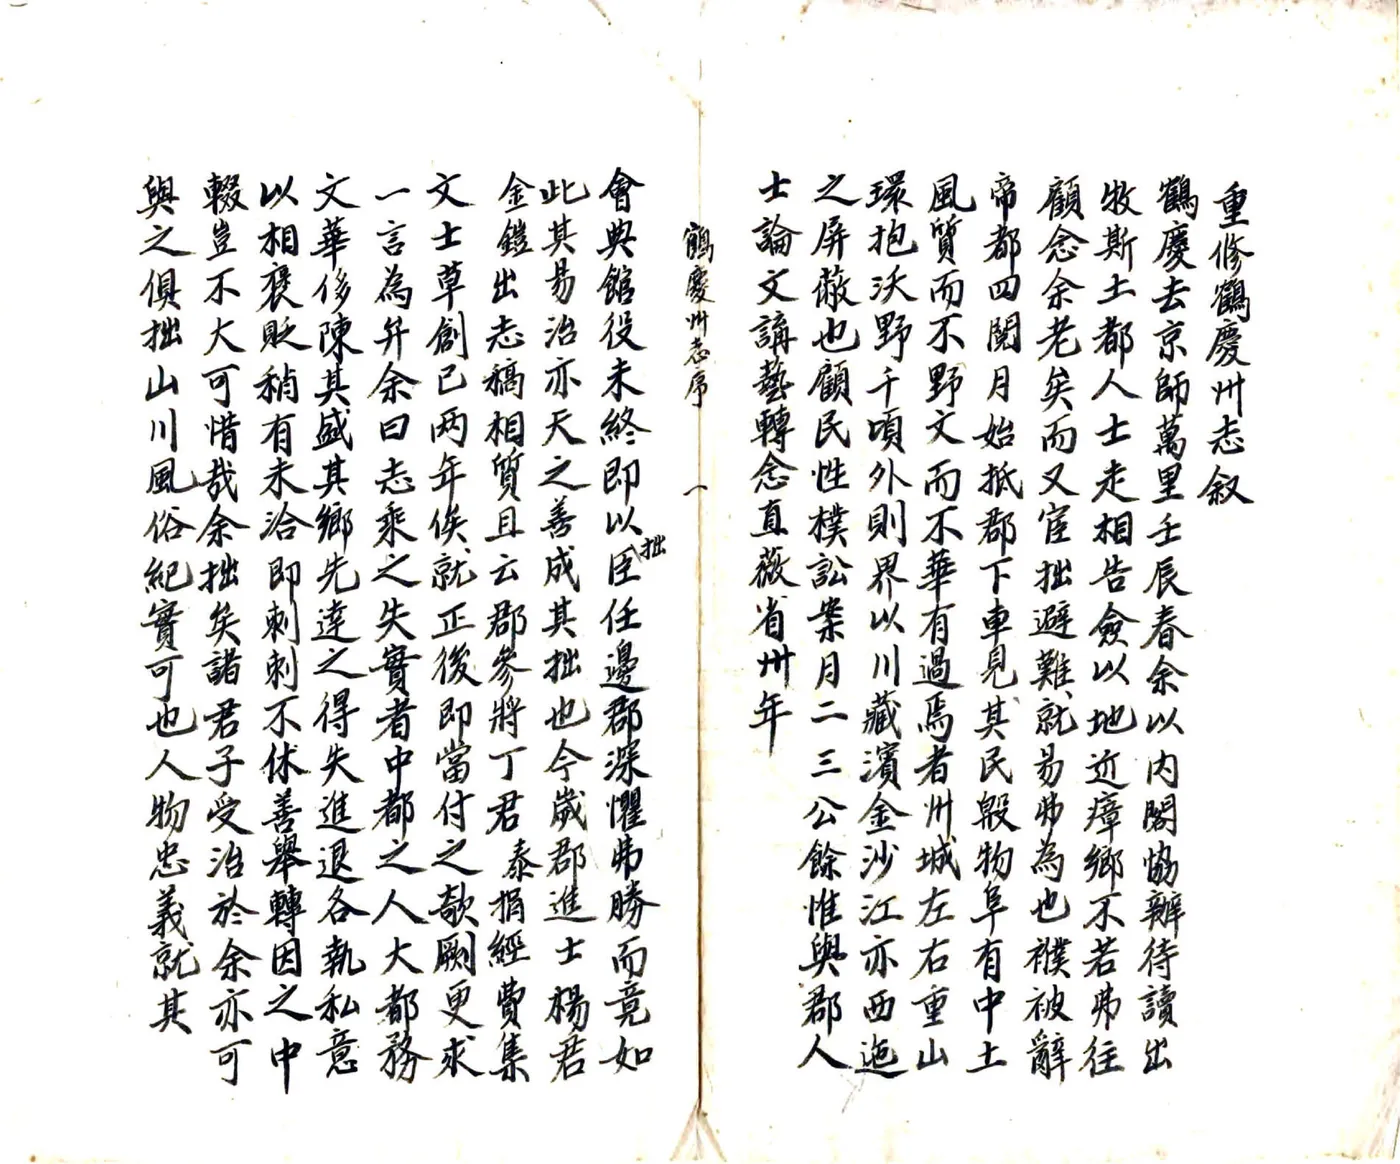 重修鶴慶州志叙
鶴慶去京師萬里壬辰春余以內閣協辦待讀出
牧斯土都人士走相告僉以地近瘴鄉不若弗往
顧念余老矣而又宦拙避難就易弗為也襆被辭
帝都四閱月始抵郡下車見其民殷物阜有中土
風質而不野文而不華有過焉者州城左右重山
環抱沃野千頃外則界以川藏濱金沙江亦西迤
之屏蔽也顧民性樸訟案月二三公餘惟與郡人
士論文講藝轉念直薇省卅年
鶴慶州志序 一
會典館役未終即以拙臣任邊郡深懼弗勝而竟如
此其易治亦天之善成其拙也今歲郡進士楊君
金鎧出志稿相質且云郡參將丁君泰捐經費集
文士草創已两年俟就正後即當付之欹劂更求
一言為弁余曰志乘之失實者中都之人大都務
文華侈陳其盛其鄉先達之得失進退各執私意
以相褒貶稍有未洽即刺刺不休善舉轉因之中
輟豈不大可惜哉余拙矣諸君子受治於余亦可
與之俱拙山川風俗紀實可也人物忠義就其